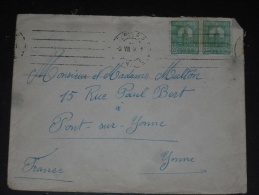 Monsieur et Madame Mutton
15 Rue Paul Bert
à
Pont-sur-Yonne
France Yonne